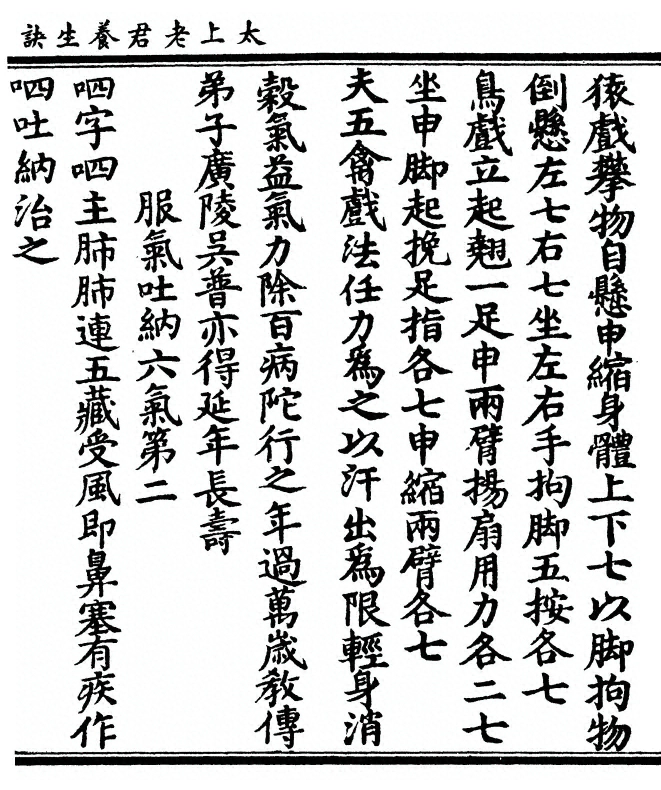 太上老君養生訣
猿戲攀物自懸申縮身體上下七以脚拘物
倒懸左七右七坐左右手拘脚五按各七
鳥戲立起翹一足申兩臂揚扇用力各二七
坐申脚起挽足指各七申縮兩臂各七
夫五禽戲法任力爲之以汗出爲限輕身消
穀氣益氣力除百病陀行之年過萬歲教傳
弟子廣陵吳普亦得延年長壽
服氣吐納六氣第二
呬字呬主肺肺連五藏受風即鼻塞有疾作
呬吐納治之